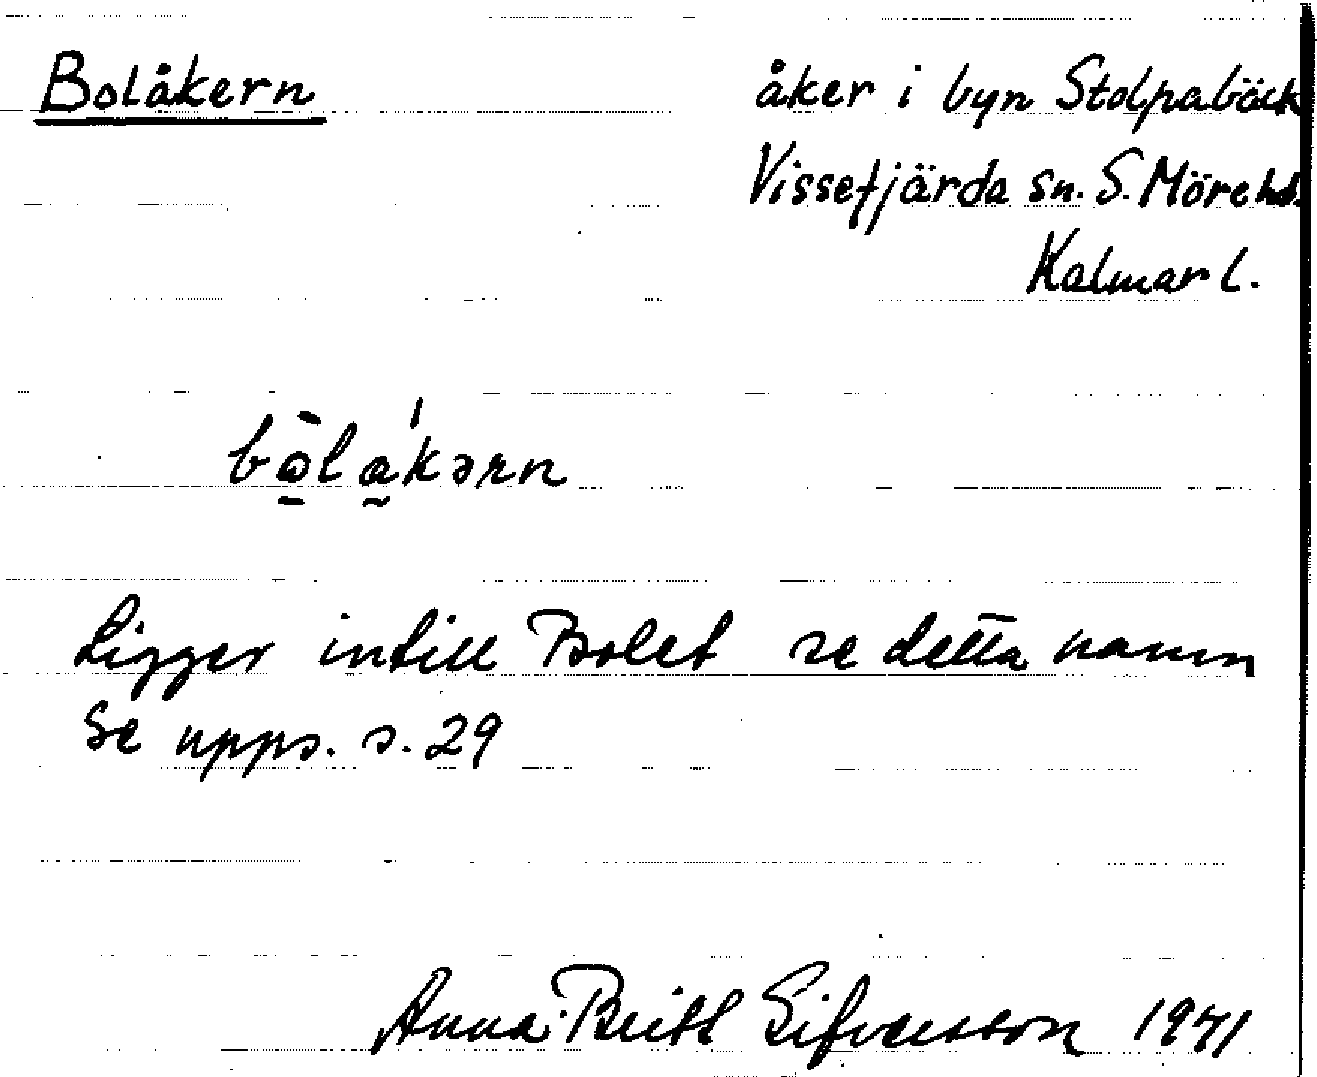 Bolåkern
åker i byn Stolpabäck
Vissefjärda sn. S. Möre hd.
Kalmar l.
bōlákərn
Ligger intill Bolet se detta namn
Se upps. s. 29
Anna-Britt Sifversson 1971